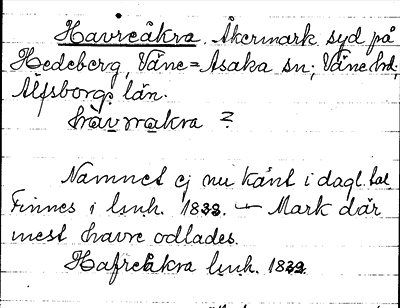 Havreåkra. Åkermark syd på
Hedeberg, Väne=Åsaka sn; Väne hd;
Älfsborgs län.
hàvrrakra ?
Namnet ej nu känt i dagl. tal
Finnes i lsnh. 1833. — Mark där
mest havre odlades.
Hafreåkra lsnh. 1833